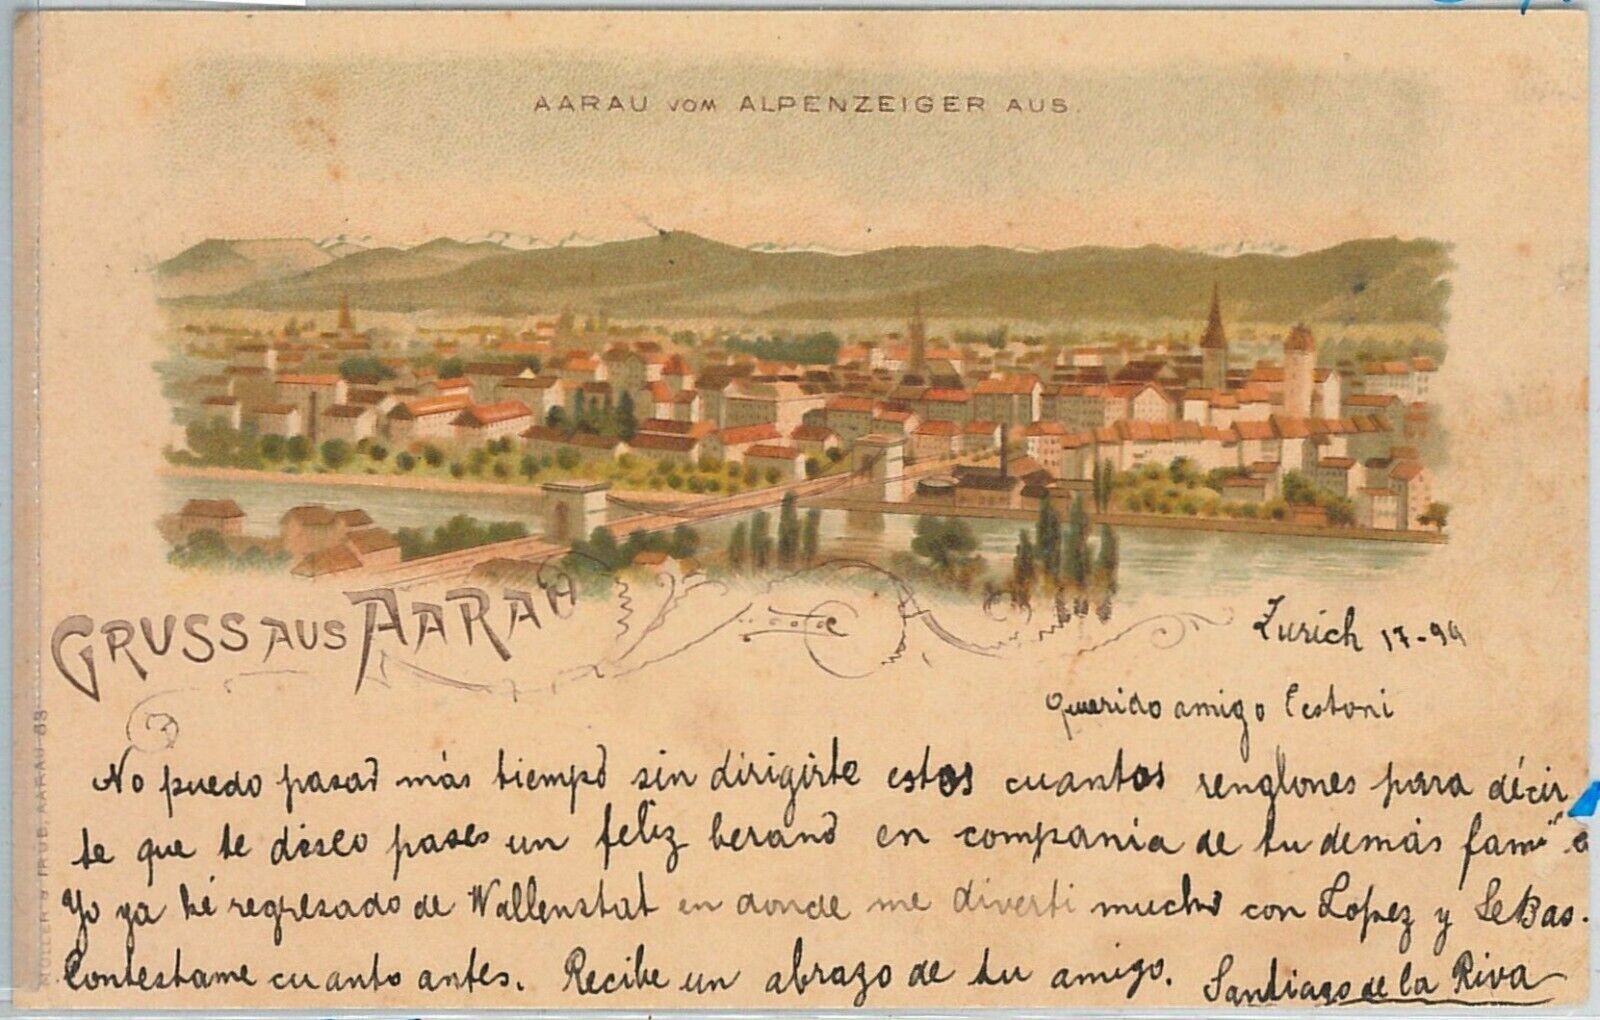 AARAU VOM ALPENZEIGER AUS.
GRUSS AUS AARAU
Zurich 17-99
Querido amigo Testoni
No puedo pasad más tiempo sin dirigirte estos cuantos renglones para décir
te que te deseo pases un feliz berano en compania de tu demás fami
Yo ya hé regresado de Wallenstat en donde me diverti mucho con Lopez y LeBas.
Contestame cuanto antes. Recibe un abrazo de tu amigo. Santiago de la Riva
MÜLLER & TRÜB, AARAU